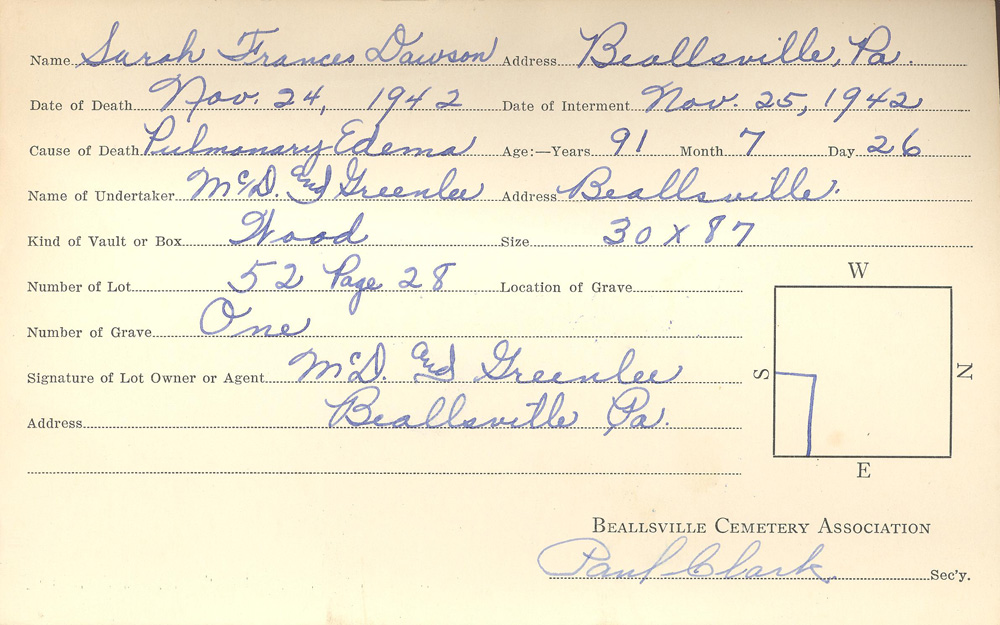 Name Sarah Frances Dawson Address Beallsville, Pa.
Date of Death Nov. 24, 1942 Date of Interment Nov. 25, 1942
Cause of Death Pulmonary Edema Age:—Years 91 Month 7 Day 26
Name of Undertaker McD. and Greenlee Address Beallsville.
Kind of Vault or Box Wood Size 30 X 87
Number of Lot 52 Page 28 Location of Grave
W
Number of Grave One
Signature of Lot Owner or Agent McD. and Greenlee
S N
Address Beallsville Pa.
E
BEALLSVILLE CEMETERY ASSOCIATION
Paul Clark Sec'y.